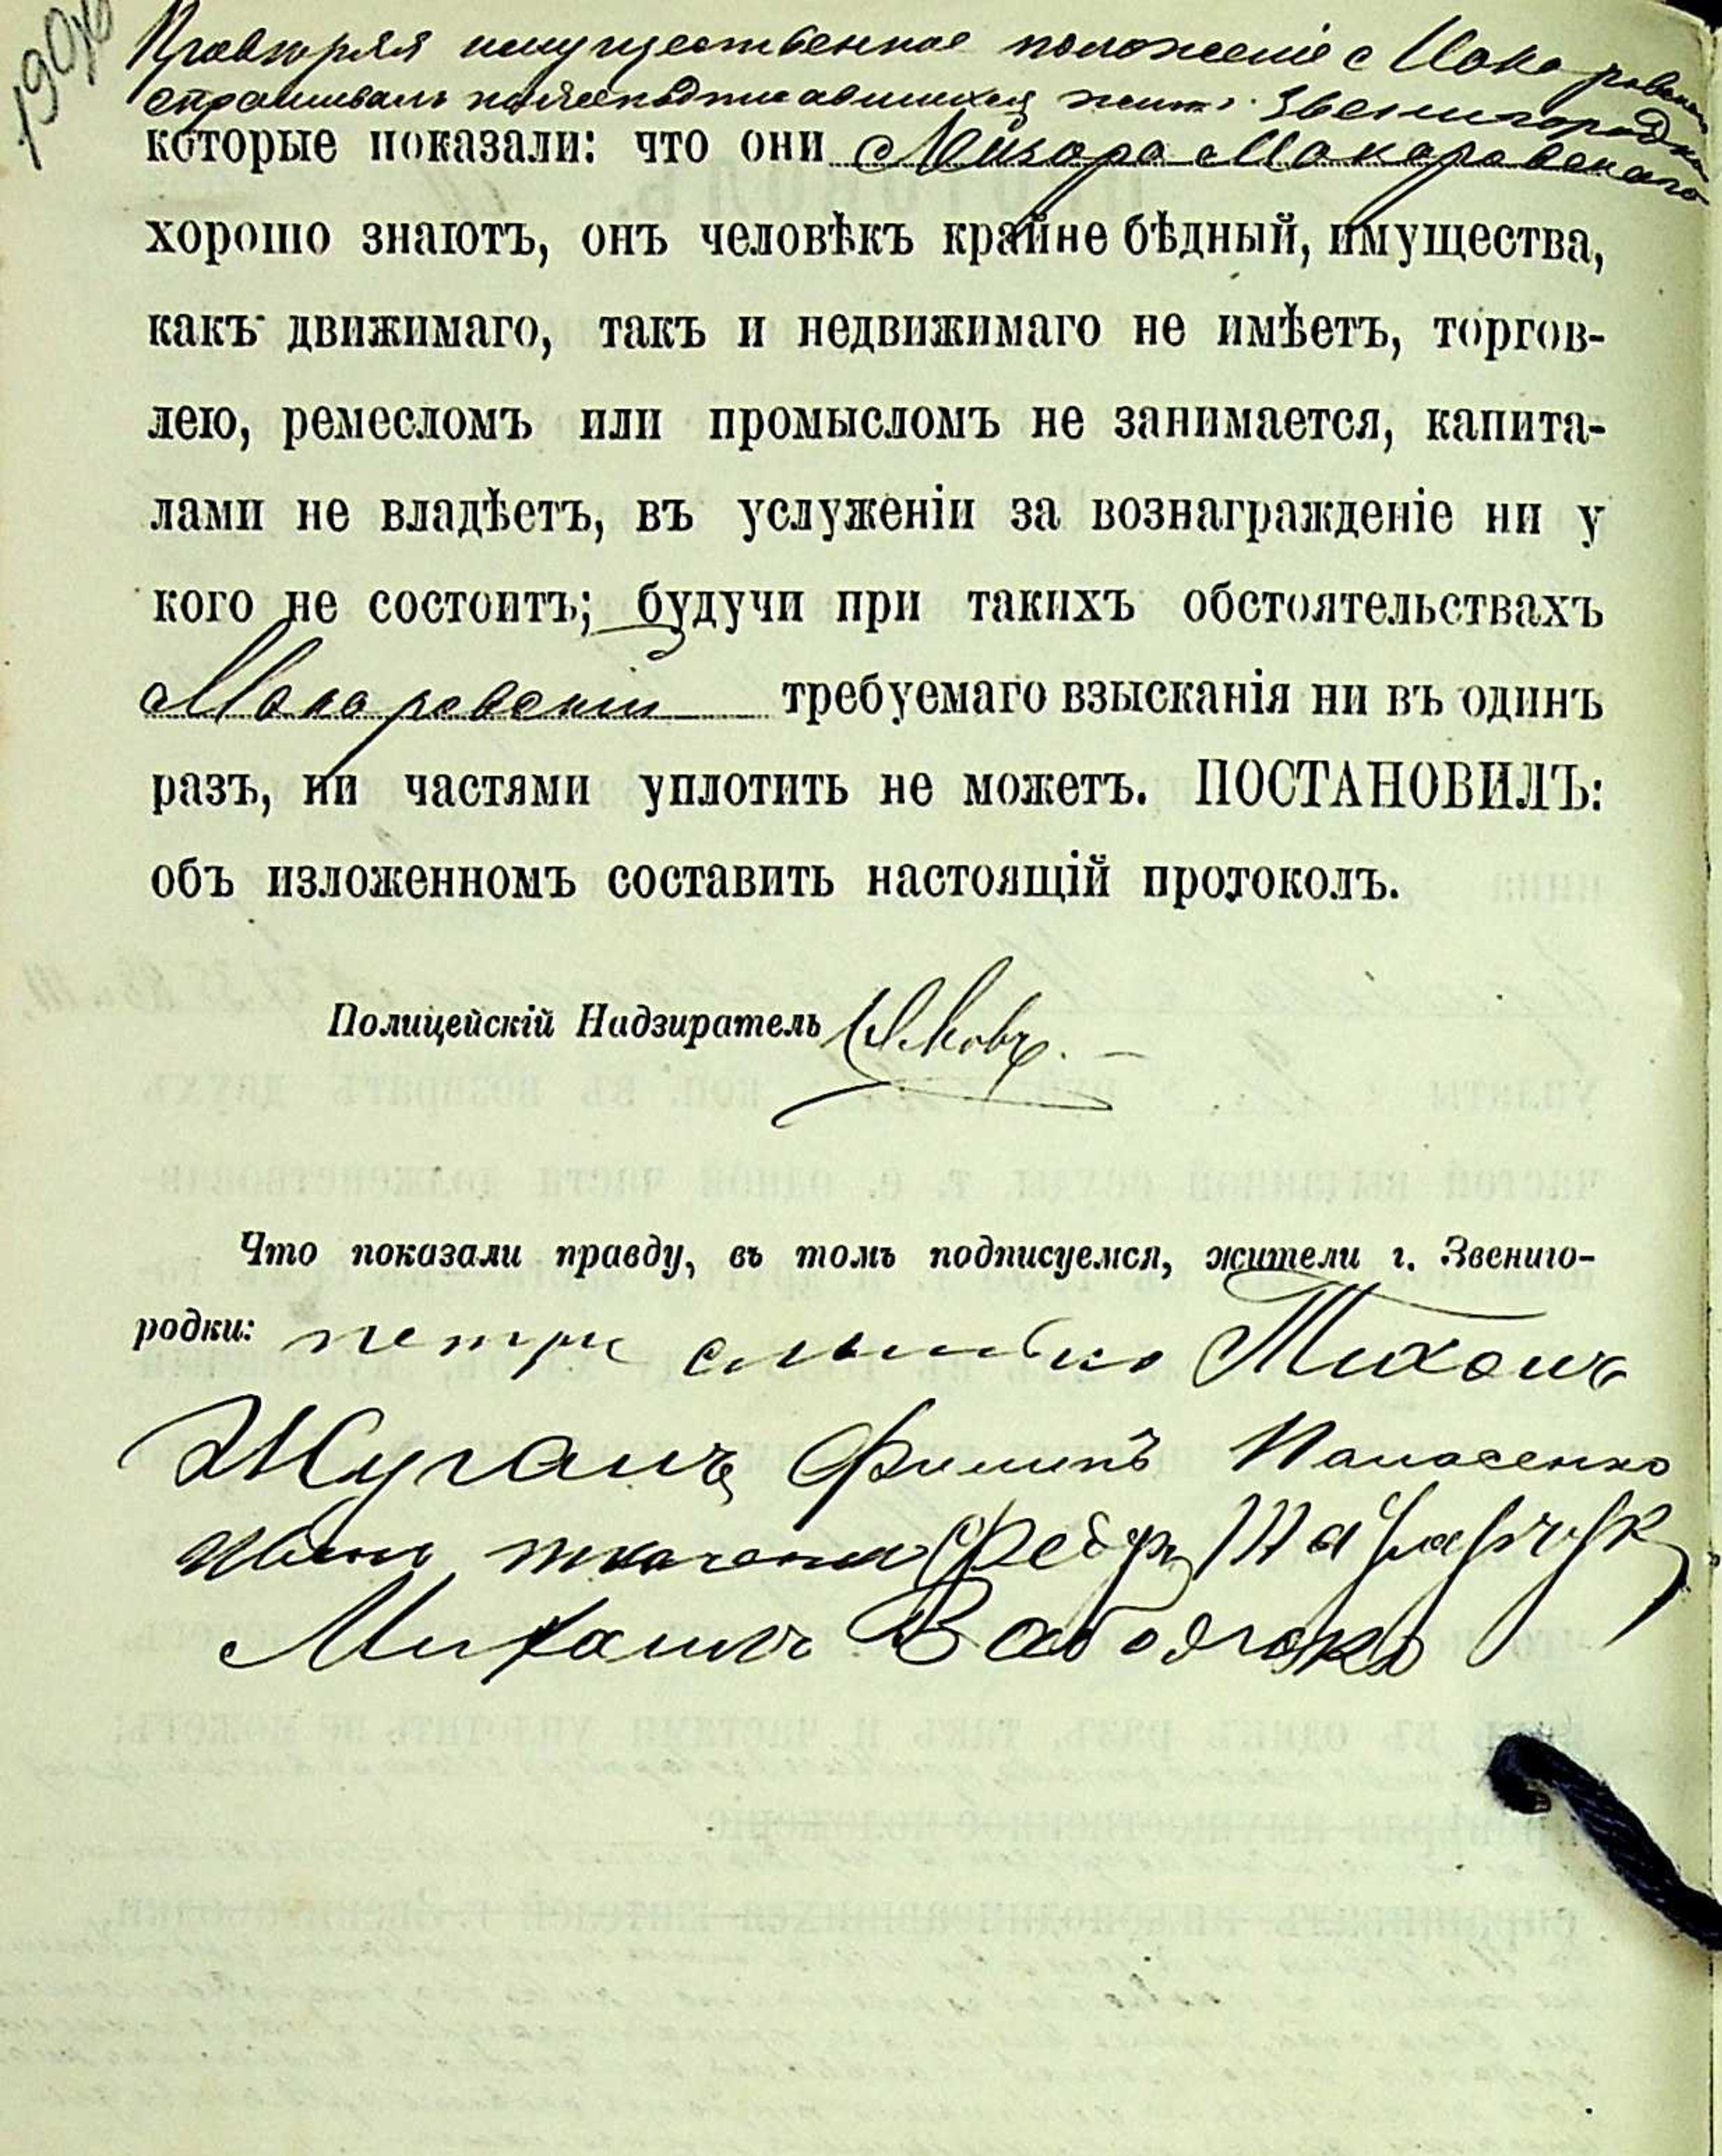 Провѣряя имущественное положеніе Макаровскаго
спрашивалъ нижеподписавшихся жит. Звенигородки
которые показали: что они Макаровскаго
хорошо знаютъ, онъ человѣкъ крайне бѣдный, имущества,
какъ движимаго, такъ и недвижимаго не имѣетъ, торгов-
лею, ремесломъ или промысломъ не занимается, капита-
лами не владѣетъ, въ услуженіи за вознагражденіе ни у
кого не состоитъ; будучи при такихъ обстоятельствахъ
Макаровскій требуемаго взысканія ни въ одинъ
разъ, ни частями уплотить не можетъ. ПОСТАНОВИЛЪ:
объ изложенномъ составить настоящій протоколъ.
Полицейскій Надзиратель
Что показали правду, въ томъ подписуемся, жители г. Звениго-
родки: петро Тихонъ
Жуганъ Филипъ Панасенко
ткаченко
Михаилъ